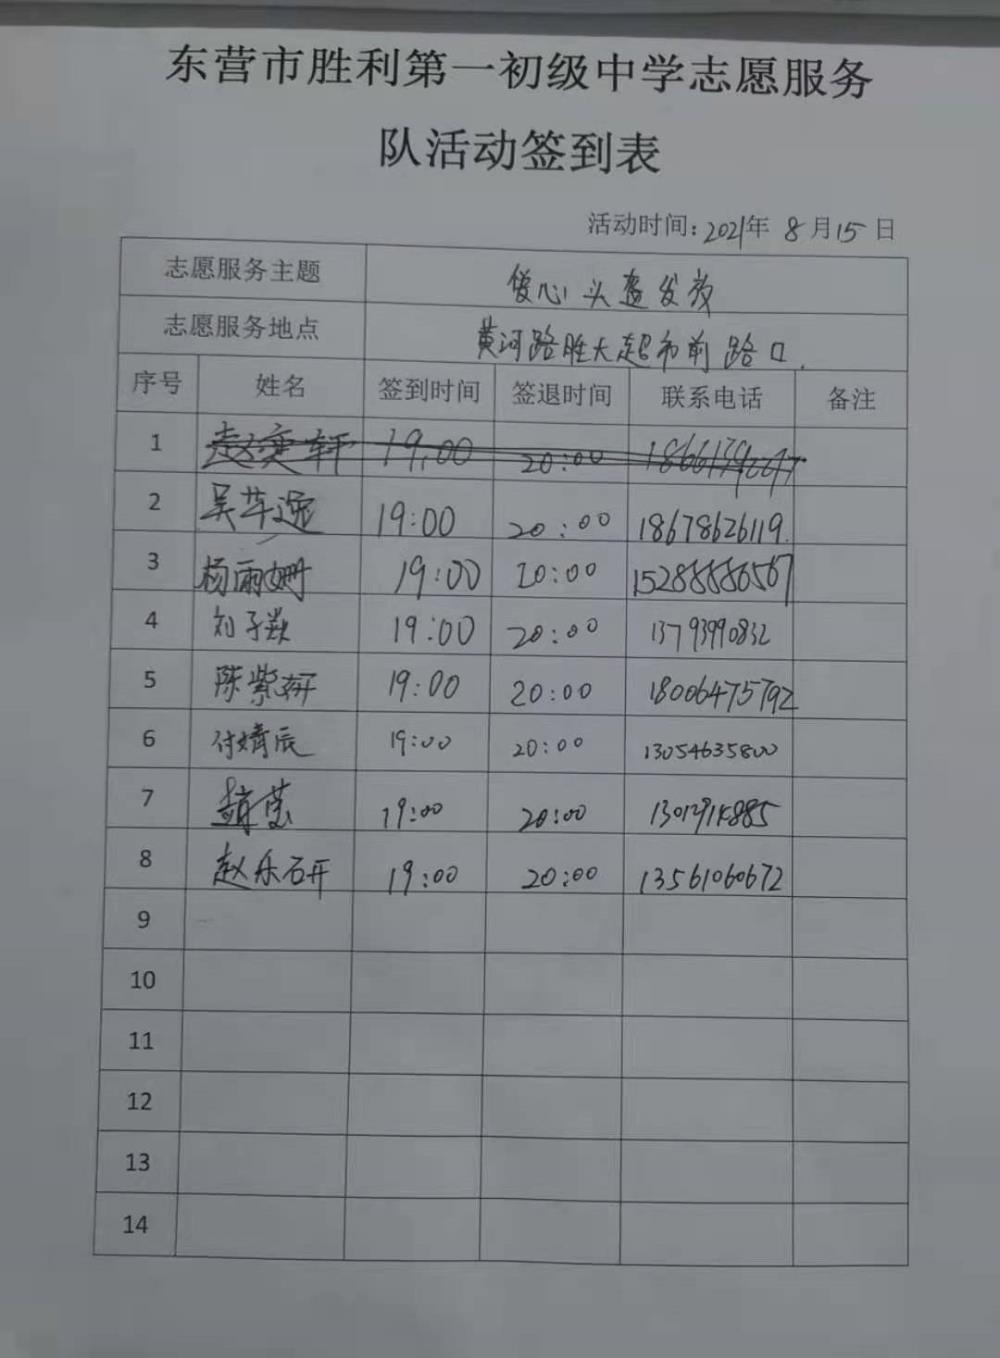 东营市胜利第一初级中学志愿服务
队活动签到表
活动时间：2021年 8月15日
志愿服务主题 爱心头盔发放
志愿服务地点 黄河路胜大超市前路口.
序号 姓名 签到时间 签退时间 联系电话 备注
1 赵奕轩 19:00 20:00
2 19:00 20:00 18678626119
3 杨雨姗 19:00 20:00 15288886567
4 刘子歆 19:00 20:00 13793990832
5 陈紫妍 19:00 20:00 18006475792
6 付婧辰 19:00 20:00 13054635800
7 19:00 20:00
8 赵乐研 19:00 20:00 13561060672
9
10
11
12
13
14